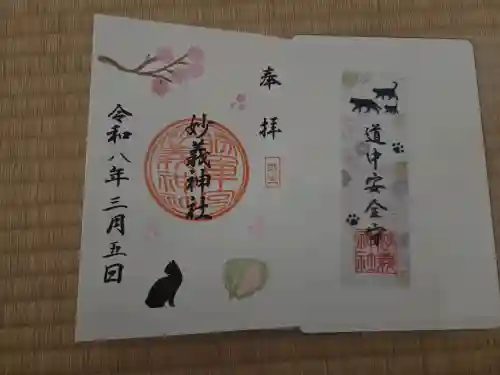 奉拝
妙義神社
令和八年三月五日
道中安全守